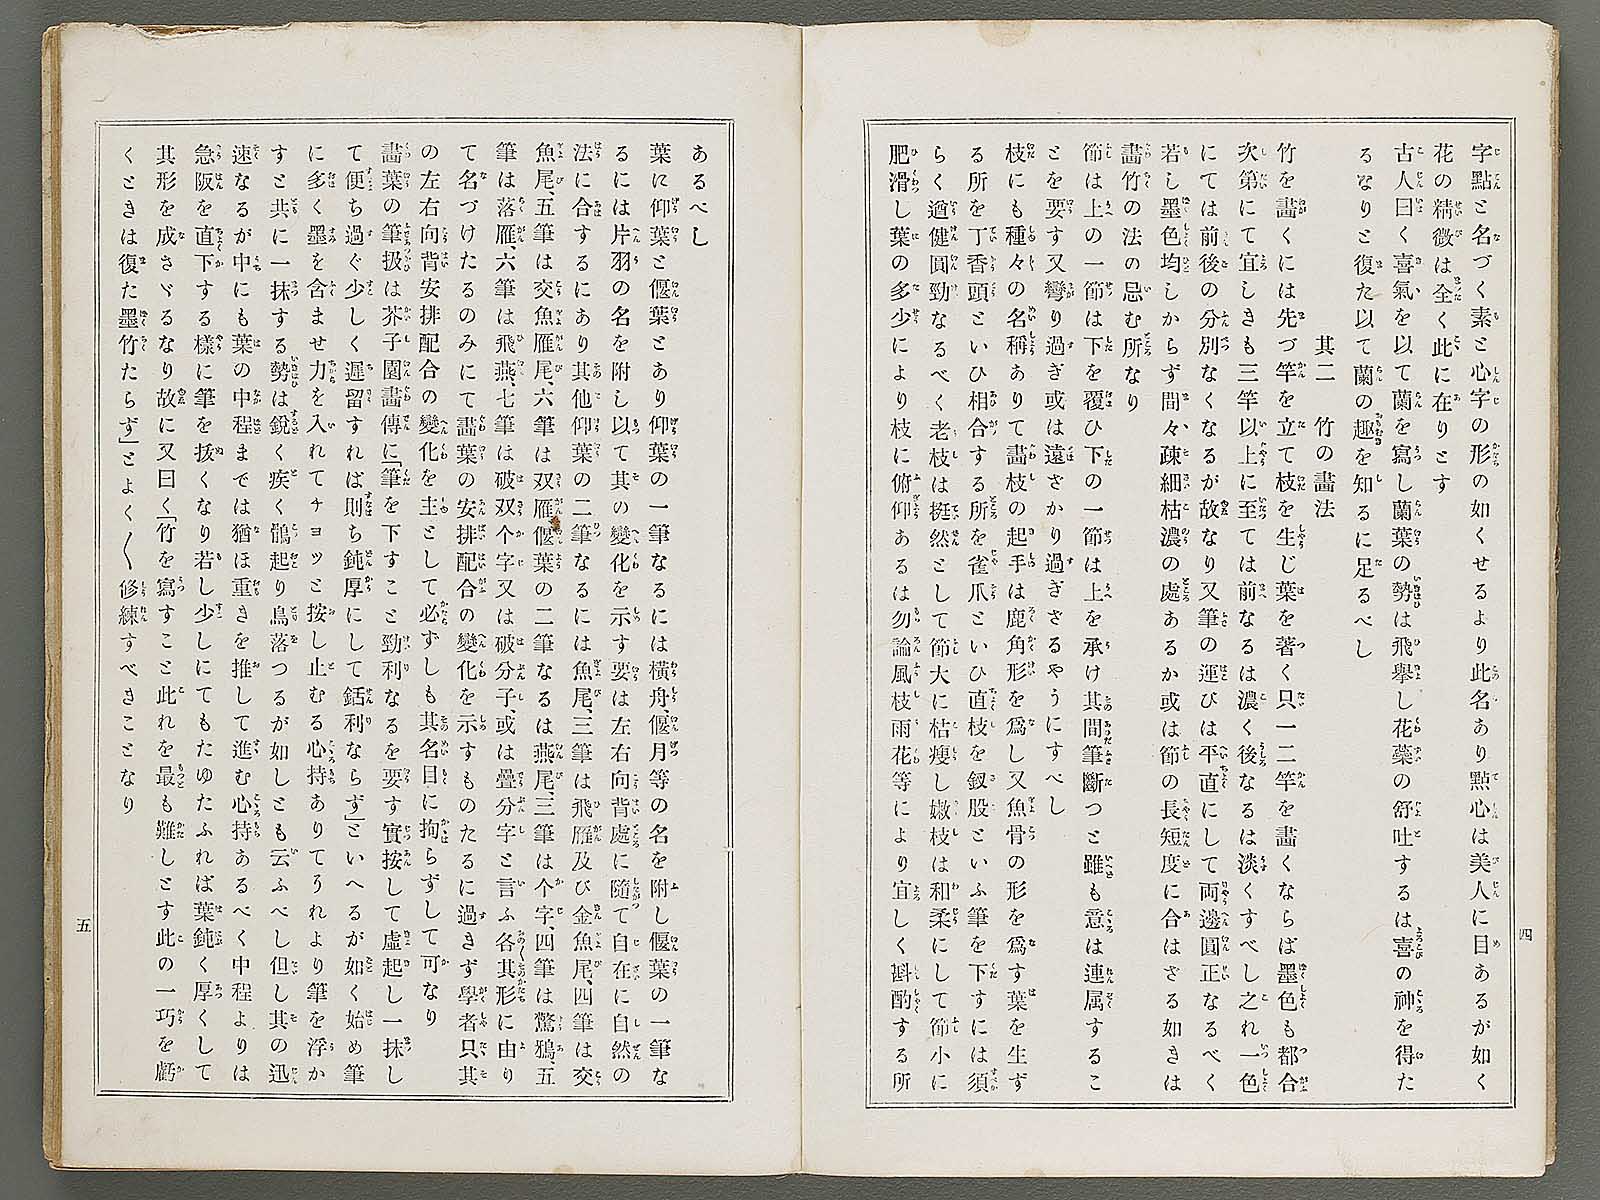 字點と名づく素と心字の形の如くせるより此名あり點心は美人に目あるが如く
花の精微は全く此に在りとす
古人曰く喜氣を以て蘭を寫し蘭葉の勢は飛擧し花蘂の舒吐するは喜の神を得た
るなりと復た以て蘭の趣を知るに足るべし
其二　竹の畫法
竹を畵くには先づ竿を立て枝を生じ葉を著く只一二竿を畵くならば墨色も都合
次第にて宜しきも三竿以上に至ては前なるは濃く後なるは淡くすべし之れ一色
にては前後の分別なくなるが故なり又筆の運びは平直にして両邊圓正なるべく
若し墨色均しからず間々疎細枯濃の處あるか或は節の長短度に合はざる如きは
畵竹の法の忌む所なり
節は上の一節は下を覆ひ下の一節は上を承け其間筆斷つと雖も意は連属するこ
とを要す又彎り過ぎ或は遠ざかり過ぎさるやうにすべし
枝にも種々の名稱ありて畵枝の起手は鹿角形を爲し又魚骨の形を爲す葉を生ず
る所を丁香頭といひ相合する所を雀爪といひ直枝を釵股といふ筆を下すには須
らく遒健圓勁なるべく老枝は挺然として節大に枯瘦し嫩枝は和柔にして節小に
肥滑し葉の多少により枝に俯仰あるは勿論風枝雨花等により宜しく斟酌する所
四
あるべし
葉に仰葉と偃葉とあり仰葉の一筆なるには橫舟、偃月等の名を附し偃葉の一筆な
るには片羽の名を附し以て其の變化を示す要は左右向背處に隨て自在に自然の
法に合するにあり其他仰葉の二筆なるには魚尾、三筆は飛雁及び金魚尾、四筆は交
魚尾、五筆は交魚雁尾、六筆は双雁偃葉の二筆なるは燕尾、三筆は个字、四筆は驚鴉、五
筆は落雁、六筆は飛燕、七筆は破双个字又は破分子、或は疊分字と言ふ各其形に由り
て名づけたるのみにて畵葉の安排配合の變化を示すものたるに過きず學者只其
の左右向背安排配合の變化を主として必ずしも其名目に拘らずして可なり
畵葉の筆扱は芥子園畵傳に「筆を下すこと勁利なるを要す實按して虛起し一抹し
て便ち過ぐ少しく遲留すれば則ち鈍厚にして銛利ならず」といへるが如く始め筆
に多く墨を含ませ力を入れてチョッと按し止むる心持ありてうれより筆を浮か
すと共に一抹する勢は銳く疾く鶻起り鳥落つるが如しとも云ふべし但し其の迅
速なるが中にも葉の中程までは猶ほ重きを推して進む心持あるべく中程よりは
急阪を直下する樣に筆を拔くなり若し少しにてもたゆたふれば葉鈍く厚くして
其形を成さゞるなり故に又曰く「竹を寫すこと此れを最も難しとす此の一巧を虧
くときは復た墨竹たらず」とよく〳〵修練すべきことなり
五